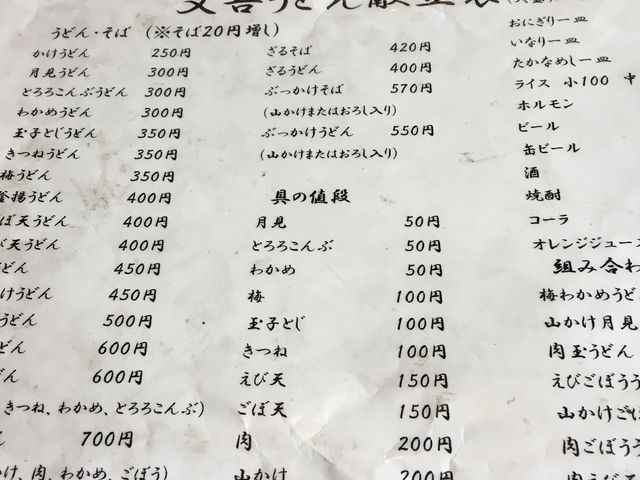 うどん・そば (※そば20円増し)
かけうどん 250円
月見うどん 300円
とろろこんぶうどん 300円
わかめうどん 300円
玉子とじうどん 350円
きつねうどん 350円
梅うどん 350円
釜揚うどん 400円
ぼ天うどん 400円
び天うどん 400円
うどん 450円
けうどん 450円
うどん 500円
どん 600円
どん 600円
きつね、わかめ、とろろこんぶ)
ん 700円
け、肉、わかめ、ごぼう)
ざるそば 420円
ざるうどん 400円
ぶっかけそば 570円
(山かけまたはおろし入り)
ぶっかけうどん 550円
(山かけまたはおろし入り)
具の値段
月見 50円
とろろこんぶ 50円
わかめ 50円
梅 100円
玉子とじ 100円
きつね 100円
えび天 150円
ごぼ天 150円
肉 200円
山かけ 200円
おにぎり一皿
いなり一皿
たかなめし一皿
ライス 小100 中
ホルモン
ビール
缶ビール
酒
焼酎
コーラ
オレンジジュース
組み合わ
梅わかめうど
山かけ月見
肉玉うどん
えびごぼうう
山かけごぼ
肉ごぼうう
肉えび天